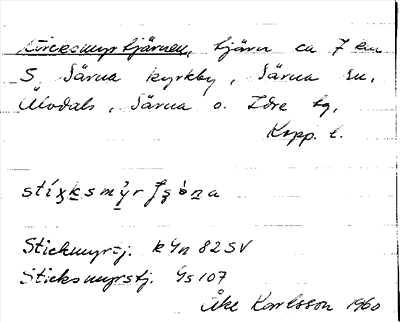 Sticksmyrtjärnen, tjärn ca 7 km
S Särna kyrkby, Särna sn,
Älvdals, Särna o. Idre tg,
Kopp. l.
Stickmyrtj. k Yn 82 SV
Sticksmyrstj. Ys 107
Åke Karlsson 1960